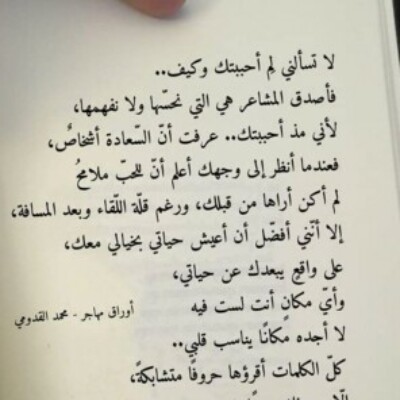 لا تسألني لِم أحببتك وكيف..
فأصدق المشاعر هي التي نحسّها ولا نفهمها،
لأني مذ أحببتك.. عرفت أنّ السّعادة أشخاصٌ،
فعندما أنظر إلى وجهك أعلم أنّ للحبّ ملامحُ
لم أكن أراها من قبلك، ورغم قلّة اللّقاء وبعد المسافة،
إلا أنّني أفضّل أن أعيش حياتي بخيالي معك،
على واقعٍ يبعدك عن حياتي،
وأيّ مكانٍ أنت لست فيه
أوراق مهاجر - محمد القدومي
لا أجده مكانًا يناسب قلبي..
كلّ الكلمات أقرؤها حروفًا متشابكةً،